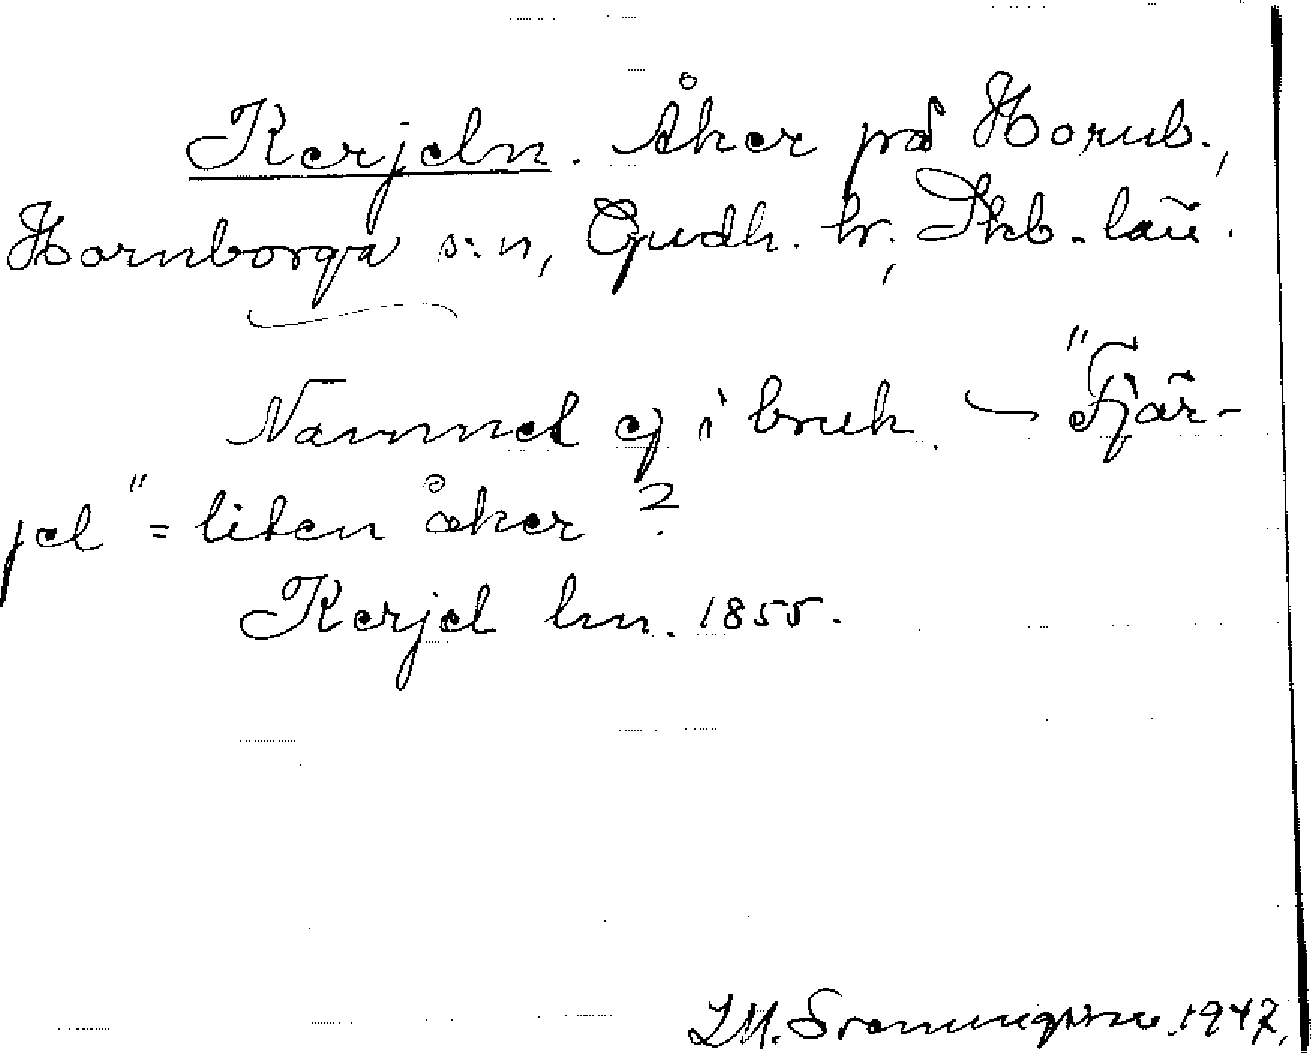 Kerjeln. Åker på Hornb.,
Hornborga s:n, Gudh. hr, Skb. län.
Namnet ej i bruk. — "Fjär-
jel" = liten åker?
Kerjel hm. 1855.
1947.